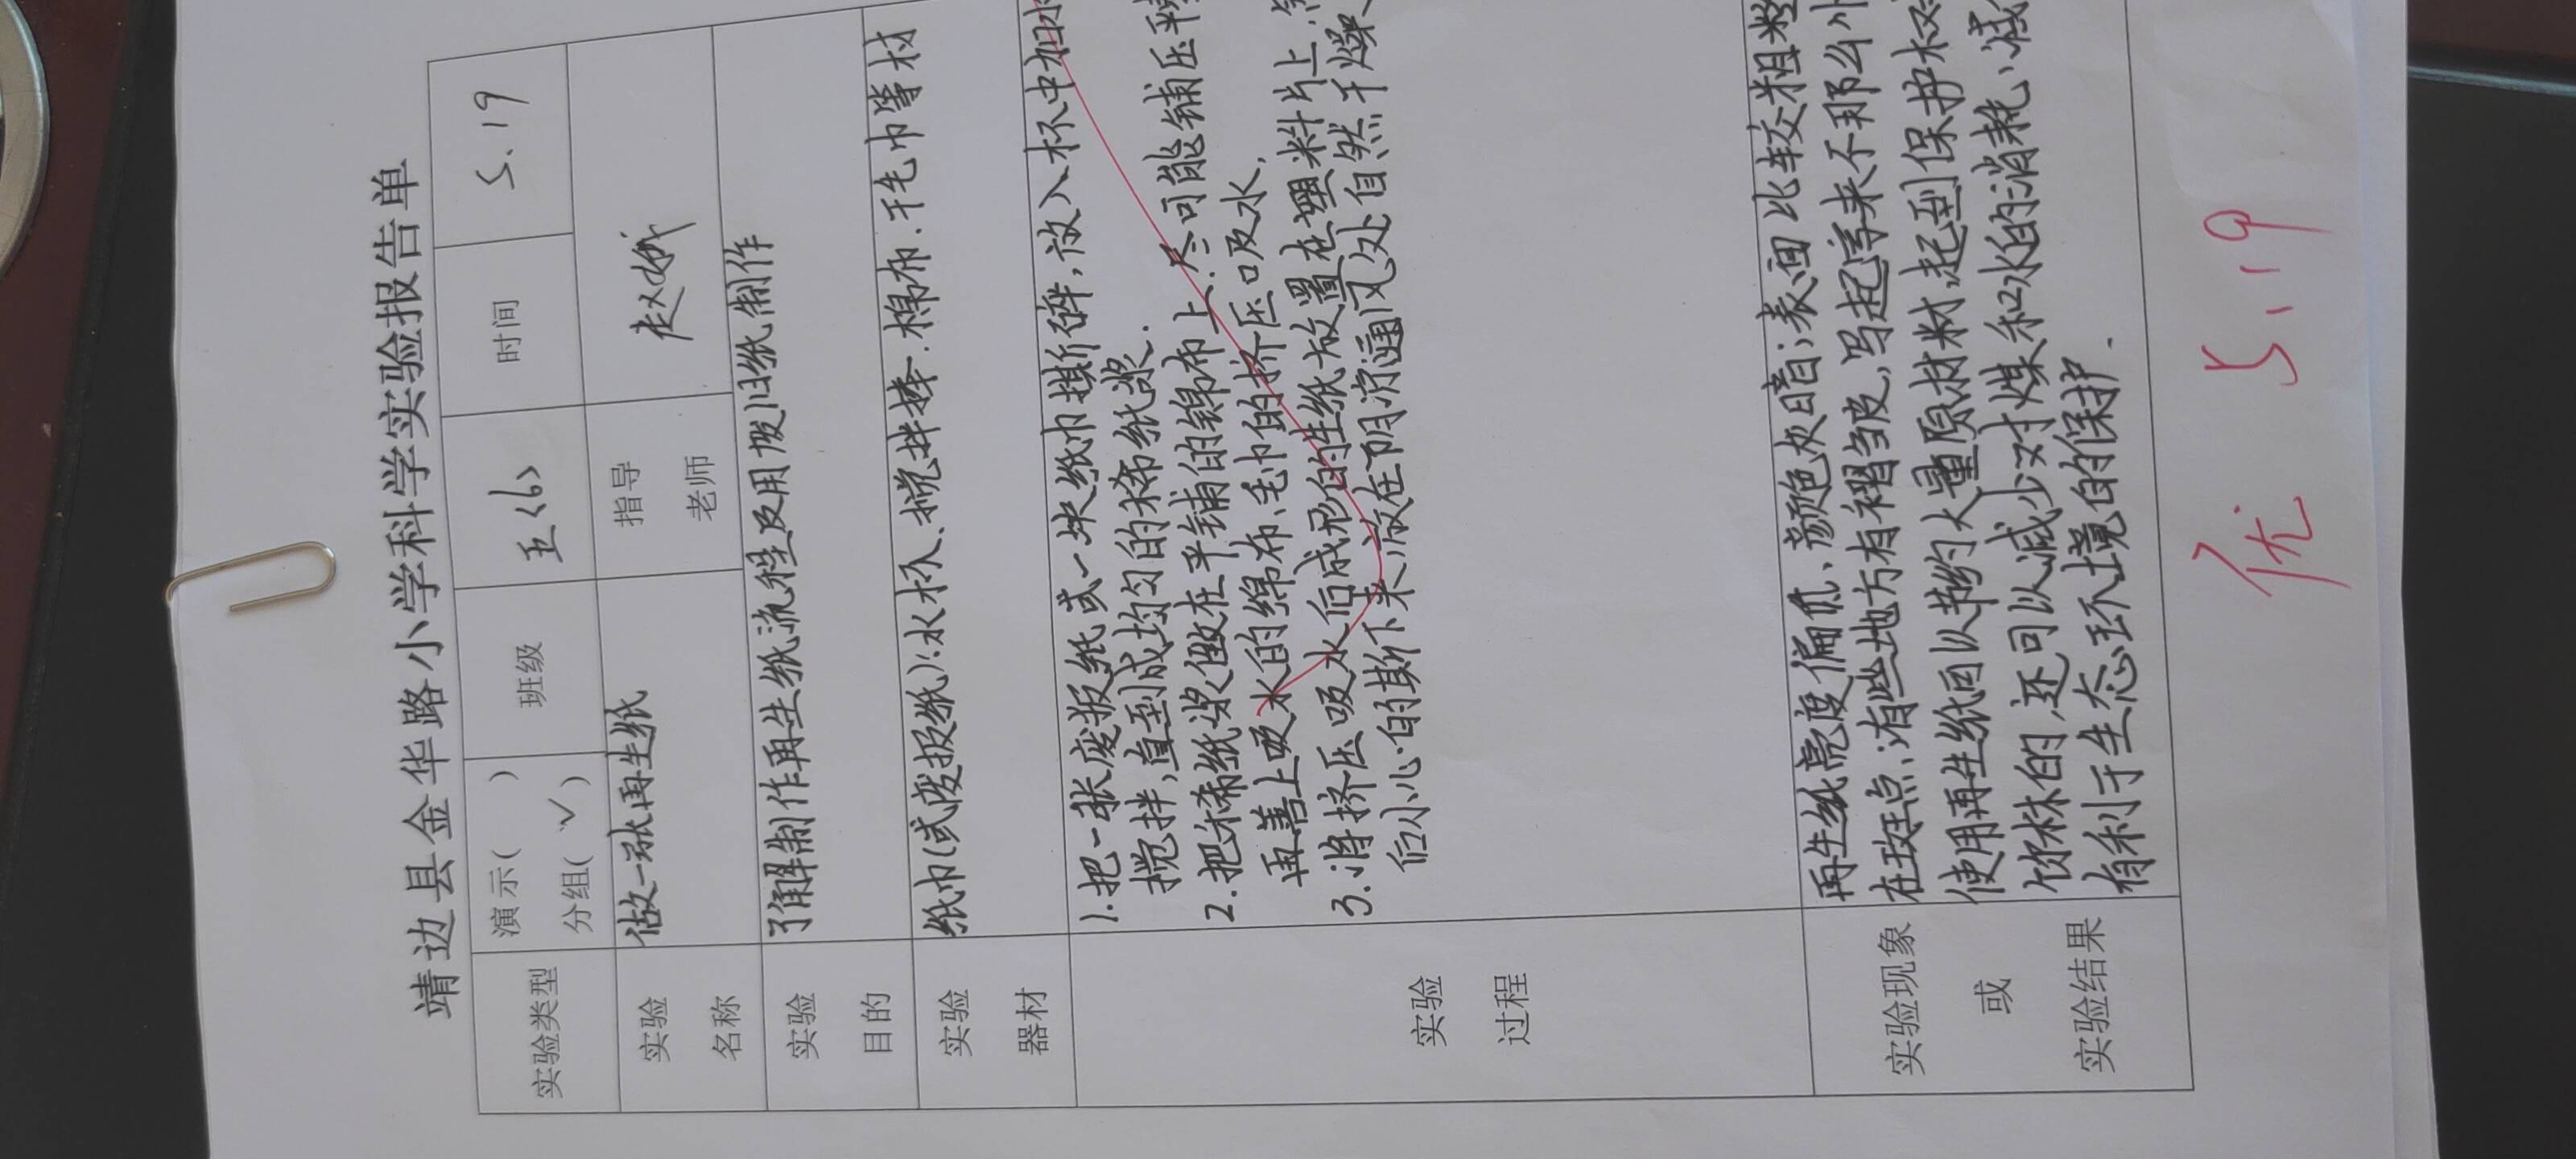 靖边县金华路小学科学实验报告单
实验类型 演示( ) 分组(✓) 班级 五<6> 时间 5.19
实验名称 做一张再生纸 指导老师 赵
实验目的 了解制作再生纸流程及用废旧纸制作
实验器材 纸巾(或废报纸):水杯、搅拌棒.棉布.干毛巾等材
实验过程
1.把一张废报纸或一块纸巾撕碎,放入杯中加水
搅拌,直到成均匀的稀纸浆.
2.把稀纸浆做在平铺的锦布上.尽可能铺压平
再盖上吸水的绵布、毛巾的挤压吸水,
3.将挤压吸水后成形的生纸放置在塑料片上.
后小心的撕下来,放在阴凉通风处自然干燥
实验现象或实验结果
再生纸亮度偏低、颜色灰暗;表面比较粗糙
在斑点;有些地方有褶皱,写起字来不那么
使用再生纸可以节约大量原材料,起到保护
饮林的,还可以减少对煤和水的消耗、减
有利于生态环境的保护.
优 5.19